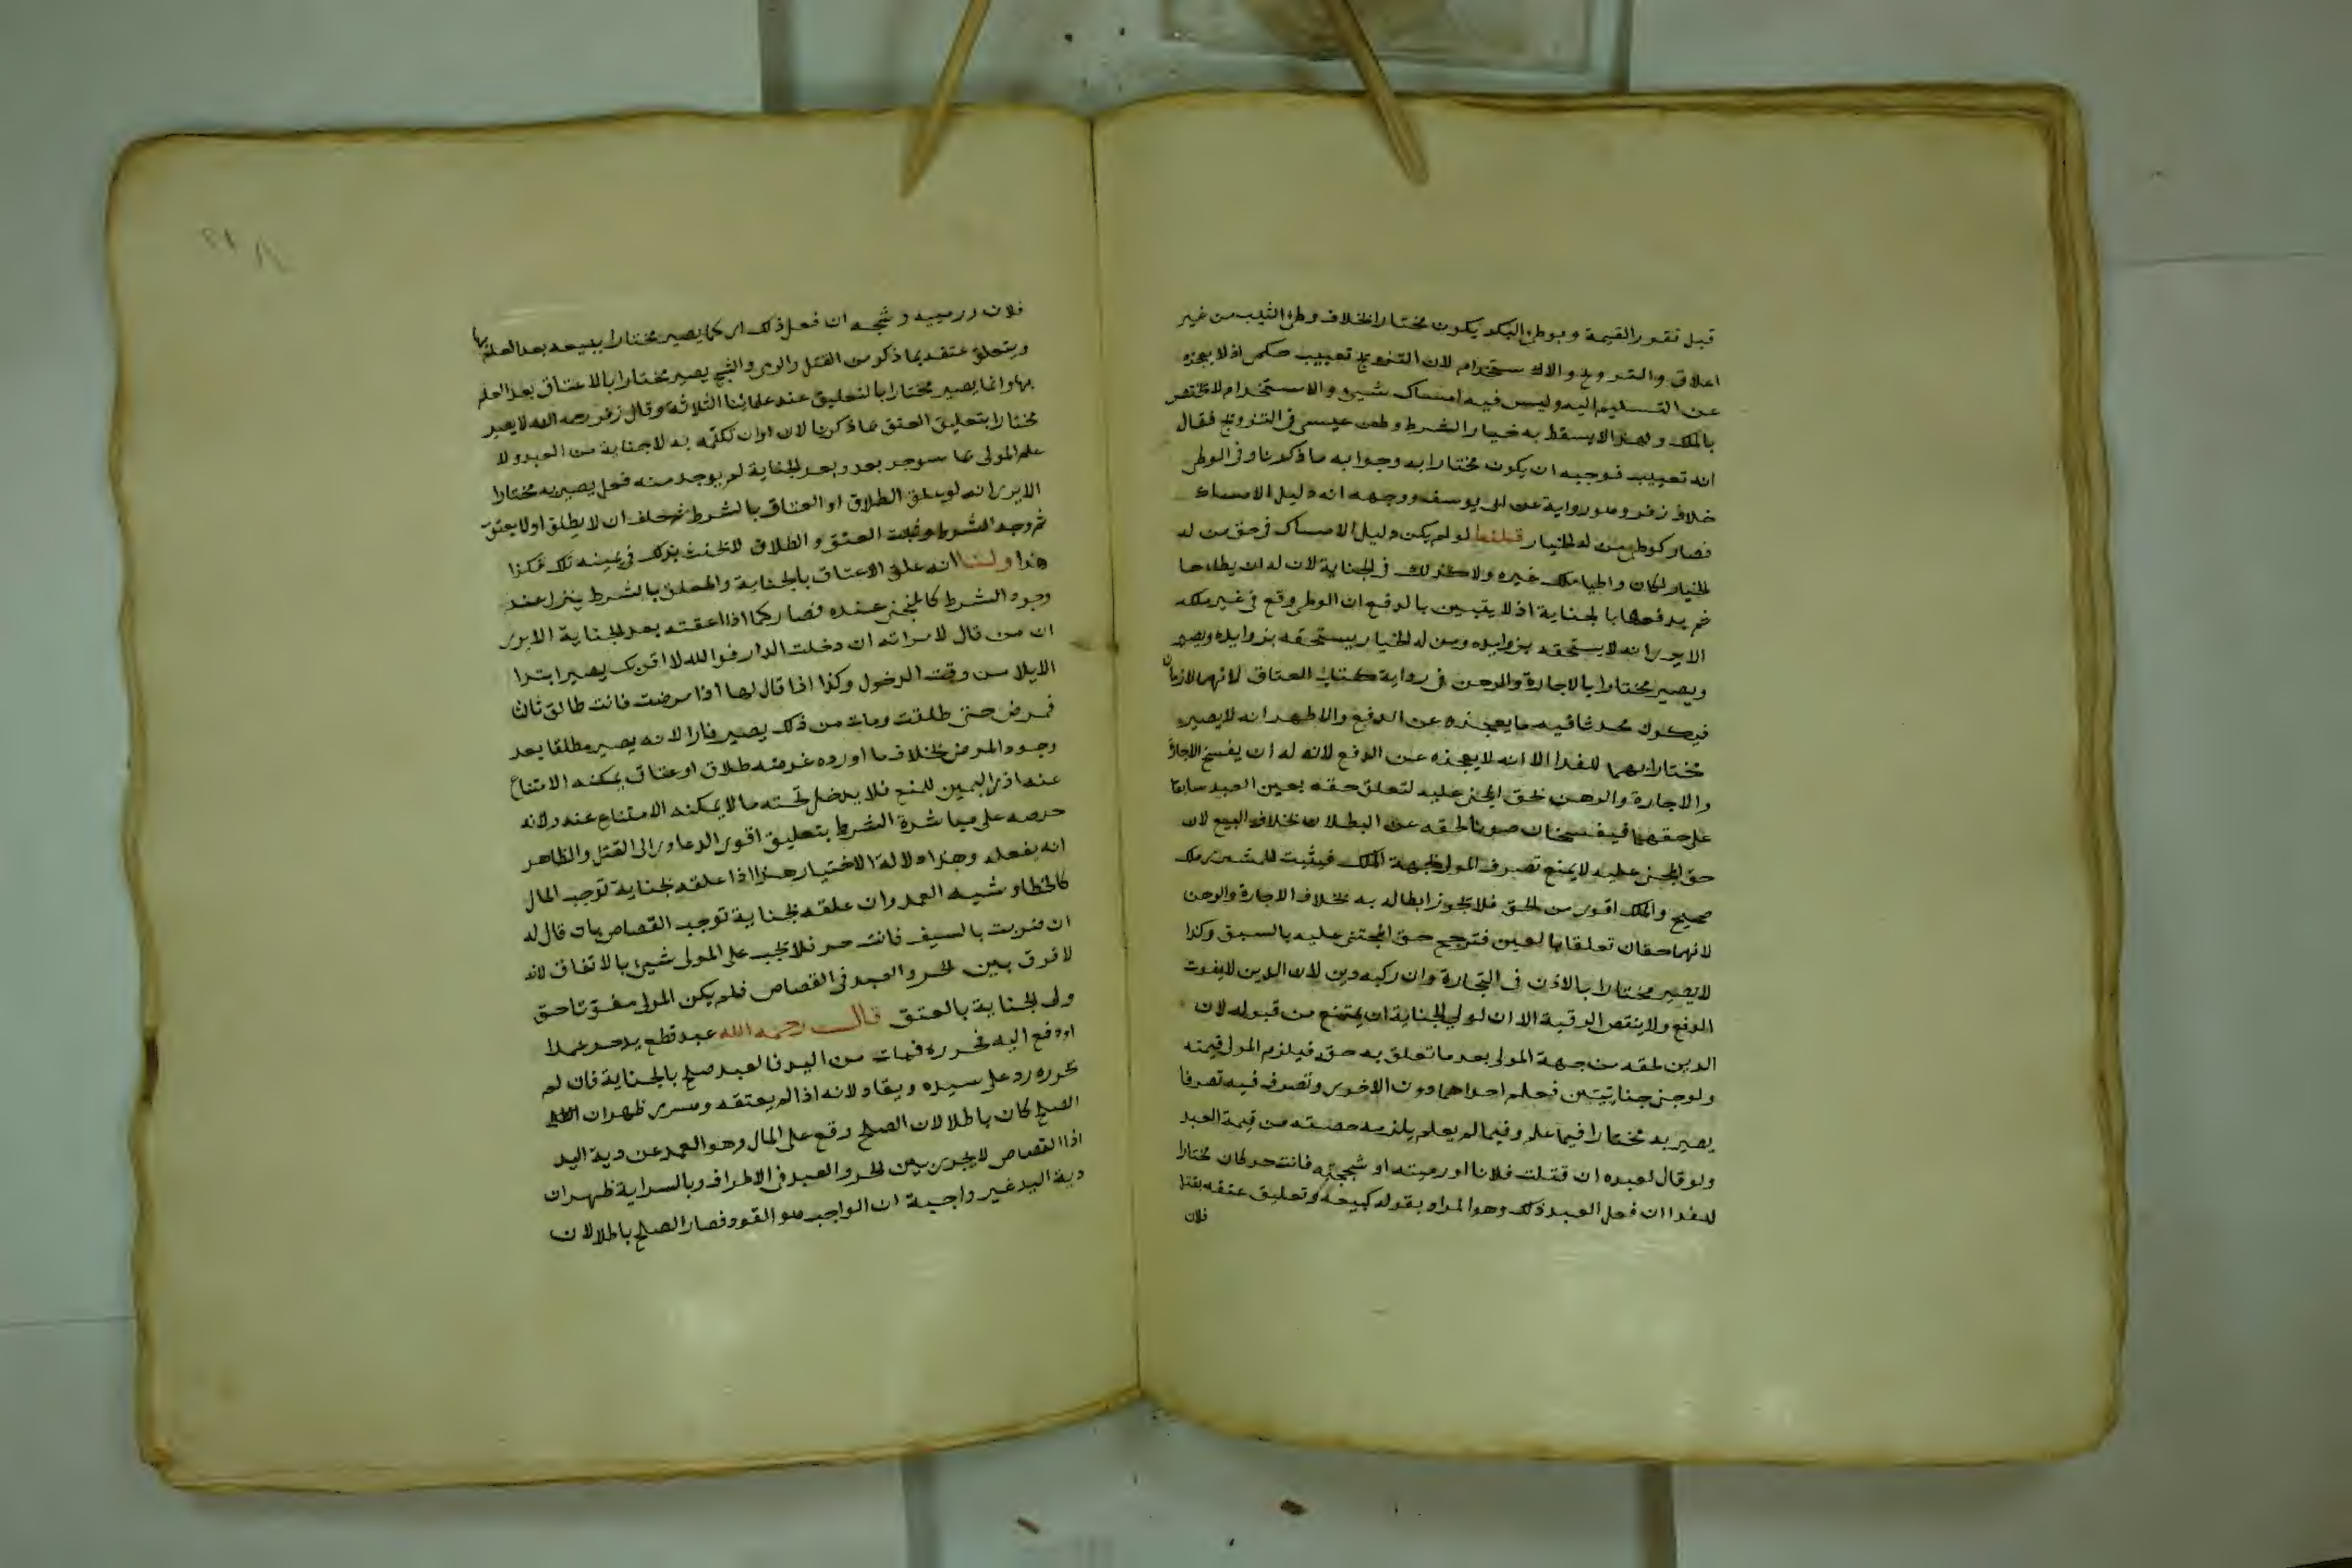 قبل تقرر القيمة وبوطئ البكر يكون مختارا بخلاف وطئ الثيب من غير
اعلاق والتزويج والاستخدام لان التزويج تعييب حكمي اذ لا يعجزه
عن التسليم اليه وليس فيه امساك شيئ والاستخدام لا يختص
بالملك ولهذا لا يسقط به خيار الشرط وطعن عيسى في التزويج فقال
انه تعييب فوجب ان يكون مختارا به وجوابه ما ذكرنا وفي الوطئ
خلاف زفر وهو رواية عن ابي يوسف ووجهه انه دليل الامساك
فصار كوطئ من له الخيار قلنا لو لم يكن دليل الامساك في حق من له
الخيار لكان واطيا ملك غيره ولا كذلك في الجناية لان له ان يطاها
ثم يدفعها بالجناية اذ لا يتبين بالدفع ان الوطئ وقع في غير ملكه
الا يرى انه لا يستحقه بزوايده ومن له الخيار يستحقه بزوايده ويصير
ويصير مختارا بالاجارة والرهن في رواية كتاب العتاق لانهما لازمان
فيكون محدثا فيه ما يعجزه عن الدفع والاظهر انه لا يصير
مختارا بهما للفدا الا انه لا يعجزه عن الدفع لانه له ان يفسخ الاجارة
والاجارة والرهن لحق المجني عليه لتعلق حقه بعين العبد سابقا
على حقهما فيفسخان صونا لحقه عن البطلان بخلاف البيع لان
حق المجني عليه لا يمنع تصرف المولى لجهة الملك فيثبت للمشتري ملك
صحيح والملك اقوى من الحق فلا يجوز ابطاله به بخلاف الاجارة والرهن
لانهما حقان تعلقا بالعين فترجح حق المجني عليه بالسبق وكذا
لا يصير مختارا بالاذن في التجارة وان ركبه دين لان الدين لا يفوت
الدفع ولا ينقص الرقبة الا ان لولي الجناية ان يمتنع من قبوله لان
الدين لحقه من جهة المولى بعد ما تعلق به حقه فيلزم المولى قيمته
ولو جنى جنايتين فعلم احداهما دون الاخرى وتصرف فيه تصرفا
يصير به مختارا فيما علم وفيما لم يعلم يلزمه حصته من قيمة العبد
ولو قال لعبده ان قتلت فلانا او رميته او شججته فانت حر كان مختارا
للفدا ان فعل العبد ذلك وهو المراد بقوله كبيعه وتعليق عتقه بقتل
فلان
فلان ورميه وشجه ان فعل ذلك اي كما يصير مختارا ببيعه بعد العلم بها
ويتعلق عتقه بما ذكر من القتل والرمي والشج يصير مختارا بالاعتاق بعد العلم
بها وانما يصير مختارا بالتعليق عند علمائنا الثلاثة وقال زفر رحمه الله لا يصير
مختارا بتعليق العتق بما ذكرنا لان اوان تكلمه به لا جناية من العبد ولا
علم المولى بما سيوجد بعد وبعد الجناية لم يوجد منه فعل يصير به مختارا
الا يرى انه لو علق الطلاق او العتاق بالشرط ثم حلف ان لا يطلق او لا يعتق
ثم وجد الشرط وثبت العتق والطلاق لا يحنث بذلك في يمينه تلك فكذا
هذا ولنا انه علق الاعتاق بالجناية والمعلق بالشرط ينزل عند
وجود الشرط كالمنجز عنده فصار كما اذا اعتقه بعد الجناية الا يرى
ان من قال لامراته ان دخلت الدار فوالله لا اقربك يصير ابتدا
الايلا من وقت الدخول وكذا اذا قال لها اذا مرضت فانت طالق ثلاثا
فمرض حتى طلقت ومات من ذلك يصير فارا لانه يصير مطلقا بعد
وجود المرض بخلاف ما اورده غرضه طلاق او عتاق يمكنه الامتناع
عنه اذ اليمين للمنع فلا يدخل تحته ما لا يمكنه الامتناع عنه ولانه
حرصه على مباشرة الشرط بتعليق اقوى الدعاوى الى القتل والظاهر
انه يفعله وهذا دلالة الاختيار هذا اذا علقه بجناية توجب المال
كالخطا وشبه العمد وان علقه بجناية توجب القصاص بان قال له
ان ضربت بالسيف فانت حر فلا يجب على المولى شيئ بالاتفاق لانه
لا فرق بين الحر والعبد في القصاص فلم يكن المولى مفوتا حق
ولي الجناية بالعتق قال رحمه الله عبد قطع يد حر عمدا
ودفع اليه فحرره فمات من اليد فالعبد صلح بالجناية فان لم
يحرره رد على سيده ويقاد لانه اذا لم يعتقه وسرى ظهر ان
الصلح كان باطلا لان الصلح وقع على المال وهو العبد عن دية اليد
اذ القصاص لا يجري بين الحر والعبد في الاطراف وبالسراية ظهر ان
دية اليد غير واجبة ان الواجب هو القود فصار الصلح باطلا لان